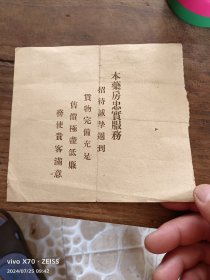 本藥房忠實服務
招待誠摯週到
貨物完備充足
售價極盡低廉
務使貴客滿意
vivo X70 · ZEISS
2024/07/25 09:42